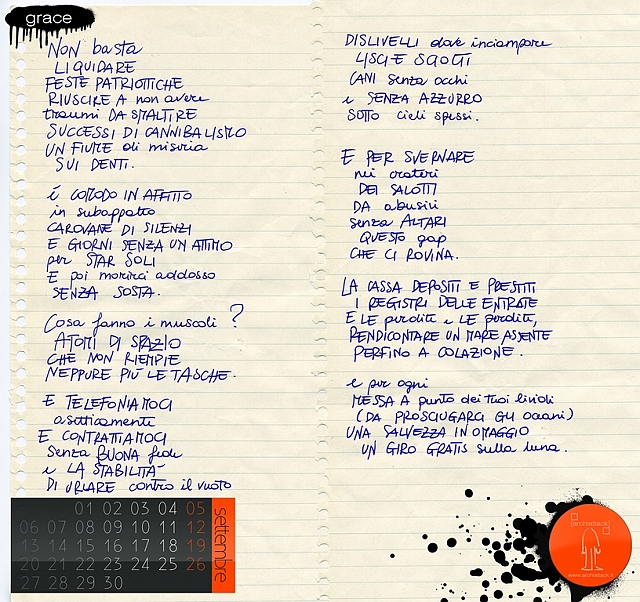 grace
NON basta
LIQUIDARE
FESTE PATRIOTTICHE
RIUSCIRE A non avere
traumi DA SMALTIRE
SUCCESSI DI CANNIBALISMO
UN FIUME di miseria
SUI DENTI.
È COMODO IN AFFITTO
in subappalto
CAROVANE DI SILENZI
E GIORNI SENZA UN ATTIMO
per STAR SOLI
E poi morirci addosso
SENZA SOSTA.
Cosa fanno i muscoli ?
ATOMI DI SPAZIO
CHE NON RIEMPIE
NEPPURE PIÙ LE TASCHE.
E TELEFONIAMOCI
asetticamente
E CONTRATTIAMOCI
Senza BUONA fede
e LA STABILITÀ
DI URLARE contro il vuoto
DISLIVELLI dove inciampare
LISCI E SCIOLTI
CANI senza occhi
e SENZA AZZURRO
SOTTO cieli spessi.
E PER SVERNARE
nei crateri
DEI SALOTTI
DA abusivi
senza ALTARI
QUESTO gap
CHE CI ROVINA.
LA CASSA DEPOSITI E PRESTITI
I REGISTRI DELLE ENTRATE
E LE perdite e LE perdite,
RENDICONTARE UN MARE ASSENTE
PERFINO A COLAZIONE.
e per ogni
MESSA A punto dei tuoi lividi
(DA PROSCIUGARCI GLI OCEANI)
UNA SALVEZZA IN OMAGGIO
UN GIRO GRATIS sulla luna.
01 02 03 04 05
06 07 08 09 10 11 12
13 14 15 16 17 18 19
20 21 22 23 24 25 26
27 28 29 30
settembre
[archiattack]
www.archiattack.it